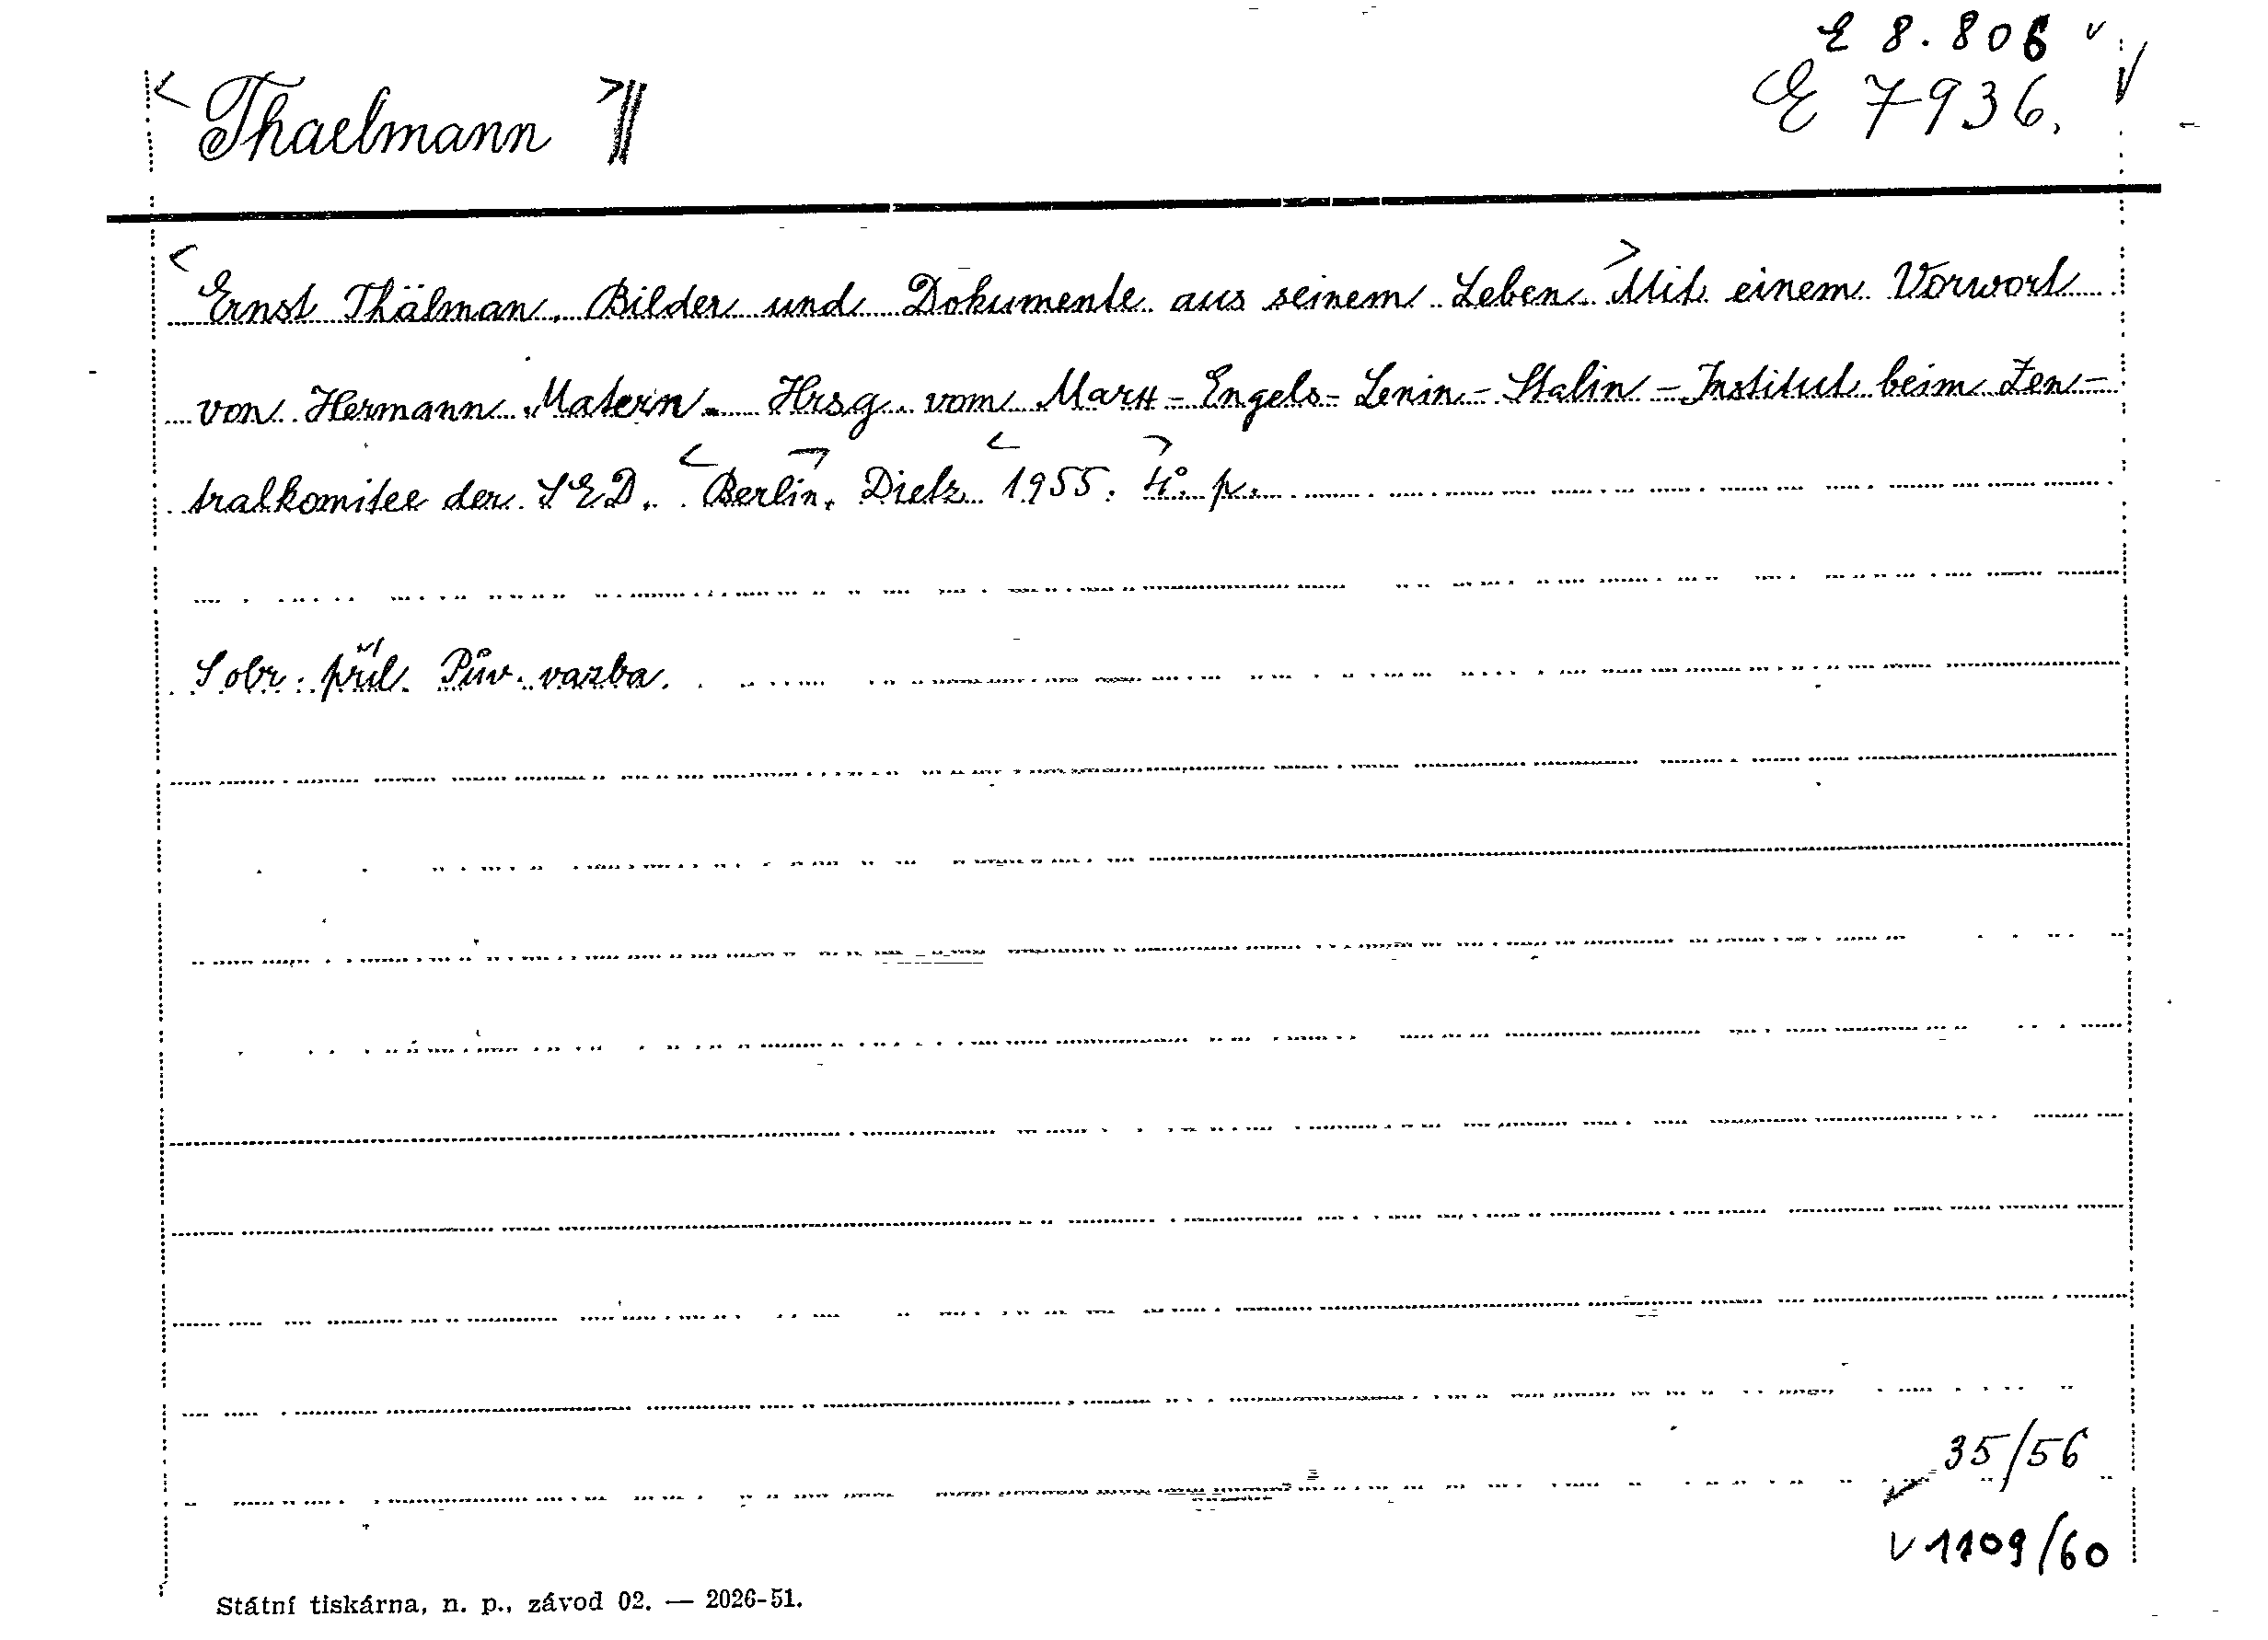 E 8.806 v
< Thaelmann >||
E 7936. v
< Ernst Thälman. Bilder und Dokumente aus seinem Leben. > Mit einem Vorwort
von Hermann Matern. Hrsg. vom Marx-Engels-Lenin-Stalin-Institut beim Zen-
tralkomitee der SED. < Berlin, > Dietz < 1955. > 4°. p.
S obr. příl. Pův. vazba.
35/56
v 1109/60
Státní tiskárna, n. p., závod 02. — 2026-51.